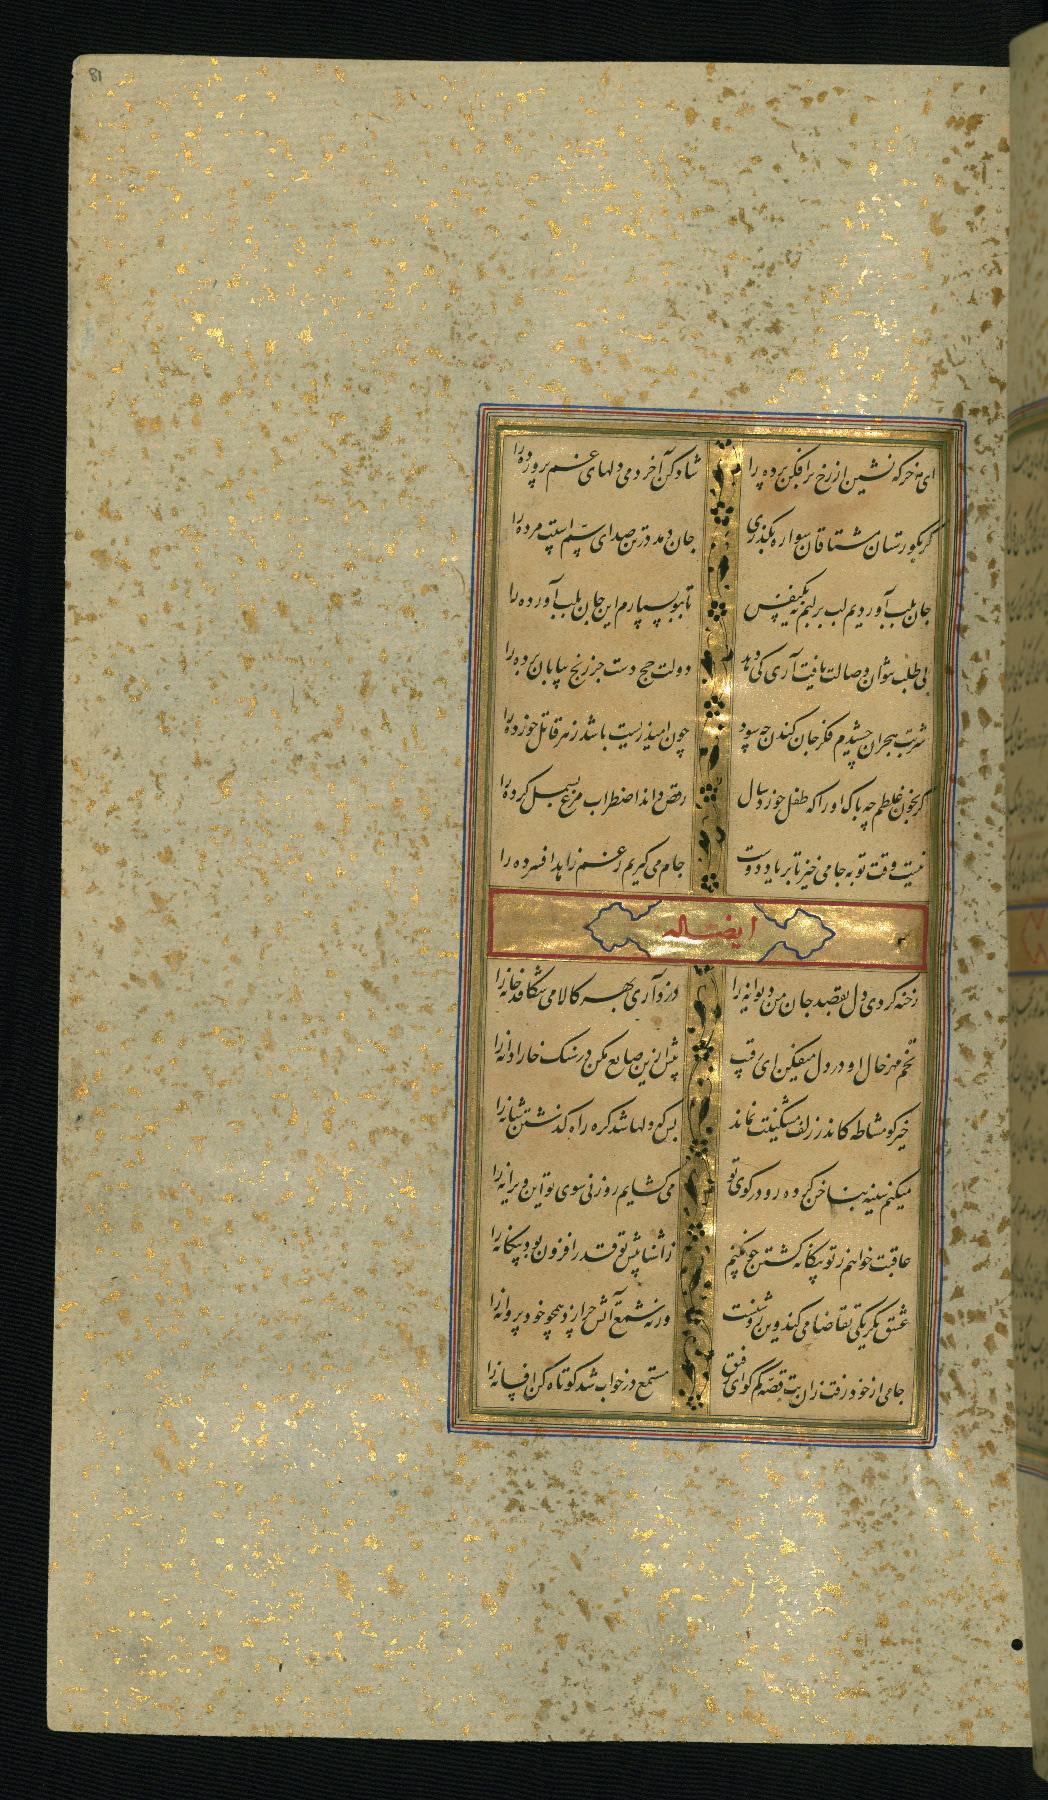 81
ای مه خرگه نشین از رخ برافکن پرده را شاد کن آخر دمی دلهای غم پرورده را
گر بگورستان مشتاقان سواره بگذری جان دمد در تن صدای سم اسبت مرده را
جان بلب آوردیم لب بر لبم نه یکنفس تا ببو سپارم این جان بلب آورده را
بی طلب نتوان وصالت یافت آری کی دهد دولت حج دست جز رنج بیابان برده را
شربت هجران چشیدم فکر جان کندن چه سود چون امید زیست باشد زهر قاتل خورده را
گر بخون غلطم چه باک او را که طفل خوردسال رقص داند اضطراب مرغ بسمل کرده را
نیست وقت توبه جامی خیز تا بر یاد دوست جام می گیریم رغم زاهد افسرده را
ایضا له
رخنه کردی دل بقصد جان من دیوانه را دزد آری بهر کالا می شکافد خانه را
تخم مهر خال او در دل میفکن ای رقیب پیش ازین ضایع مکن در سنگ خارا دانه را
خیز کو مشاطه کاندر زلف مشکینت نماند بس که دلها شد گره راه گذشتن شانه را
میکنم سینه بناخن کرده رو در کوی تو می گشایم روزنی سوی تو این ویرانه را
عاقبت خواهم ز تو بیگانه گشتن چو کنم زآشنا پیش تو قدر افزون بود بیگانه را
عشق یکرنگی تقاضا می کند وین روشنست ورنه شمع آتش چرا زد همچو خود پروانه را
جامی از خود رفت زان بت قصه کم گو ای رفیق مستمع در خواب شد کوتاه کن افسانه را